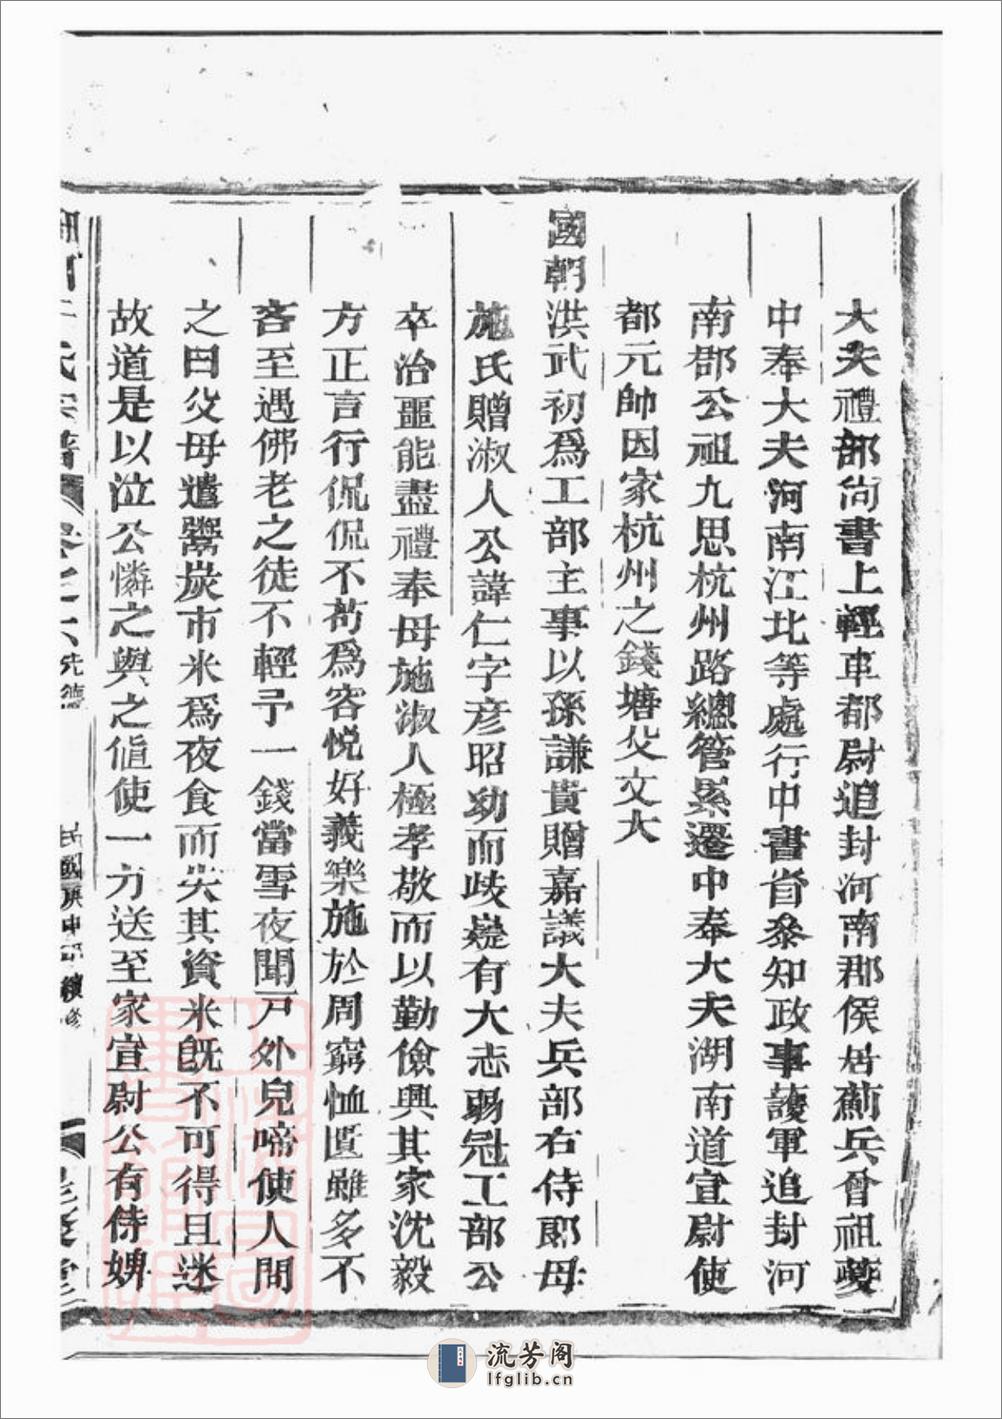 大夫禮部尚書上輕車都尉追封河南郡侯居薊兵曾祖夔
中奉大夫河南江北等處行中書省叅知政事護軍追封河
南郡公祖九思杭州路總管累遷中奉大夫湖南道宣尉使
都元帥因家杭州之錢塘父文大
國朝洪武初爲工部主事以孫謙貴贈嘉議大夫兵部右侍郎母
施氏贈淑人公諱仁字彦昭幼而歧嶷有大志弱冠工部公
卒治噩能盡禮奉母施淑人極孝敬而以勤儉興其家沈毅
方正言行侃侃不茍爲容悅好義樂施於周窮恤匱雖多不
吝至遇佛老之徒不輕予一錢當雪夜聞戸外兒啼使人問
之曰父母遣鬻炭市米爲夜食而失其資米旣不可得且迷
故道是以泣公憐之與之値使一力送至家宣尉公有侍婢
氏宗譜 卷之六 先德 民國庚申 續修 堂
流芳阁
lfglib.cn